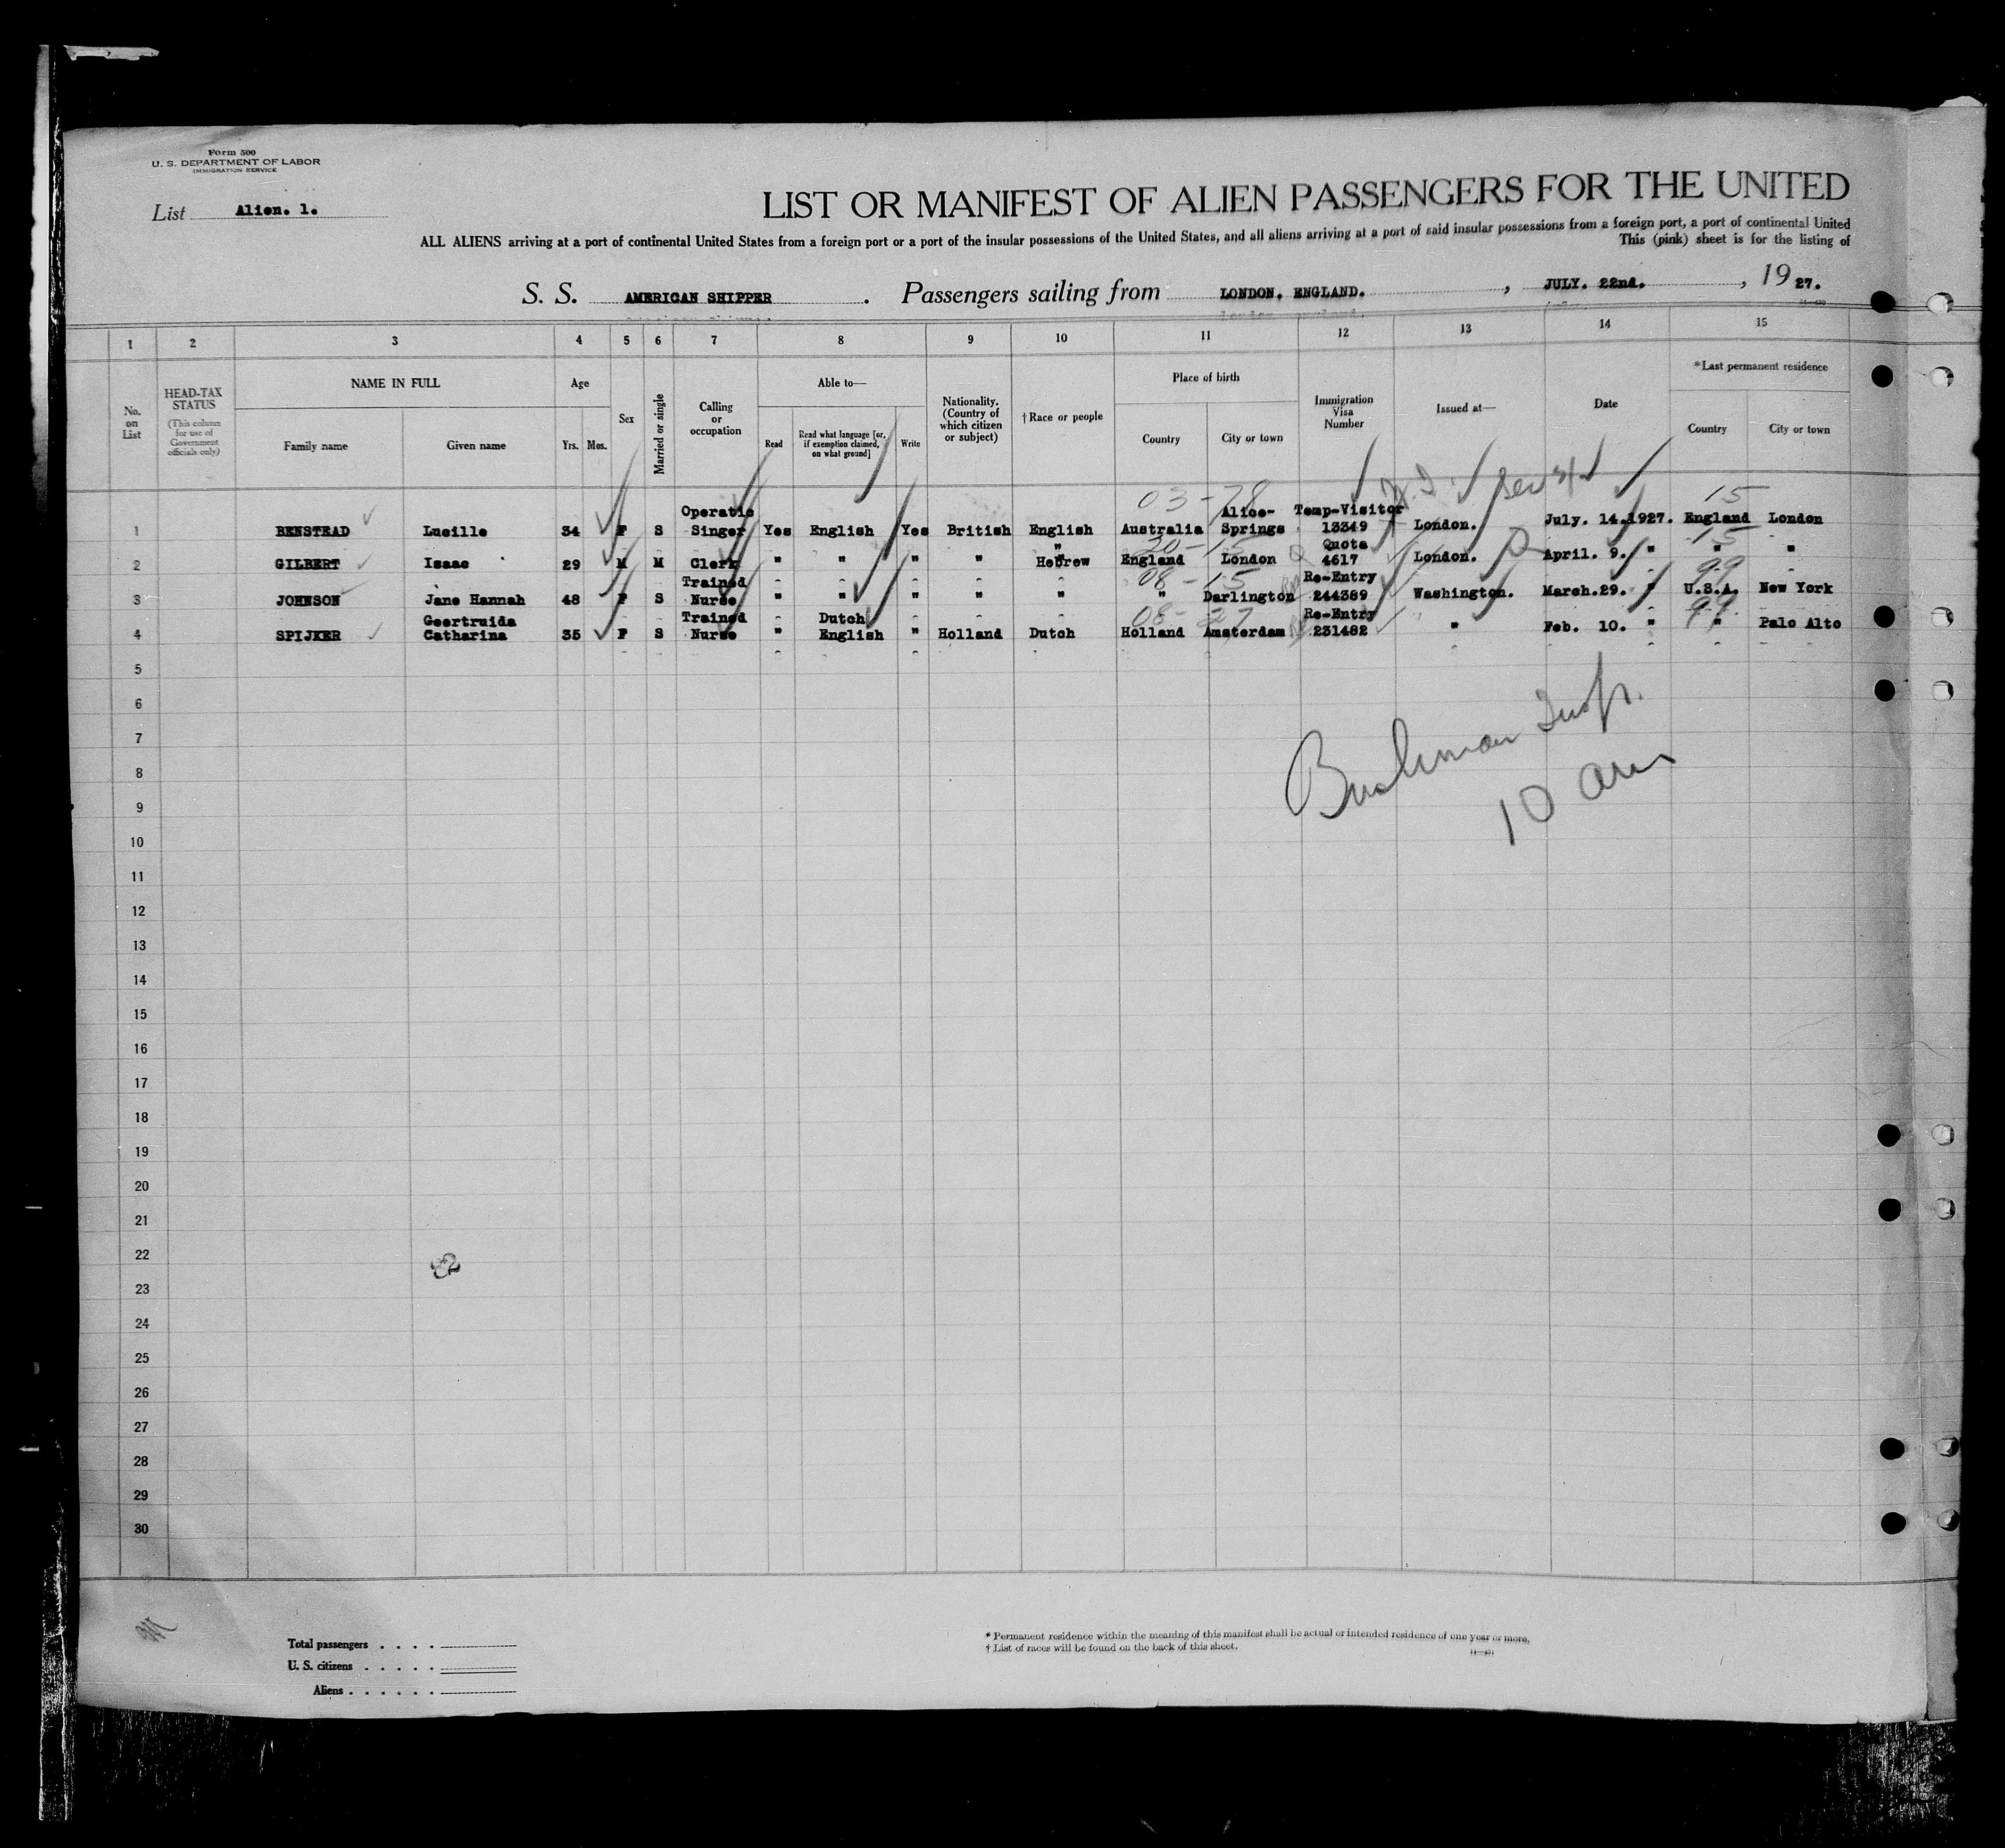 Form 500
U. S. DEPARTMENT OF LABOR
IMMIGRATION SERVICE
List Alien. 1.
LIST OR MANIFEST OF ALIEN PASSENGERS FOR THE UNITED
ALL ALIENS arriving at a port of continental United States from a foreign port or a port of the insular possessions of the United States, and all aliens arriving at a port of said insular possessions from a foreign port, a port of continental United
This (pink) sheet is for the listing of
S. S. AMERICAN SHIPPER . Passengers sailing from LONDON. ENGLAND. , JULY. 22nd. , 19 27.
1 2 3 4 5 6 7 8 9 10 11 12 13 14 15
No. on List
HEAD-TAX STATUS (This column for use of Government officials only)
NAME IN FULL
Family name Given name
Age
Yrs. Mos.
Sex
Married or single
Calling or occupation
Able to—
Read Read what language [or, if exemption claimed, on what ground] Write
Nationality. (Country of which citizen or subject)
†Race or people
Place of birth
Country City or town
Immigration Visa Number
Issued at—
Date
*Last permanent residence
Country City or town
03-78 15
Operatic Alice- Temp-Visitor
1 BENSTEAD Lucille 34 F S Singer Yes English Yes British English Australia Springs 13349 London. July. 14.1927. England London
20-15 Quota 15
2 GILBERT Isaac 29 M M Clerk " " " " Hebrew England London 4617 London. April. 9. " " "
Trained 08-15 Re-Entry 99
3 JOHNSON Jane Hannah 48 F S Nurse " " " " " " Darlington 244389 Washington. March.29. " U.S.A. New York
Geertruida Trained Dutch 08-27 Re-Entry 99
4 SPIJKER Catharina 35 F S Nurse " English " Holland Dutch Holland Amsterdam 231482 " Feb. 10. " " Palo Alto
5
6
7
8
9
10
11
12
13
14
15
16
17
18
19
20
21
22
23
24
25
26
27
28
29
30
Bushman Insp.
10 am
Total passengers . . . .
U. S. citizens . . . . .
Aliens . . . . . .
* Permanent residence within the meaning of this manifest shall be actual or intended residence of one year or more.
† List of races will be found on the back of this sheet.